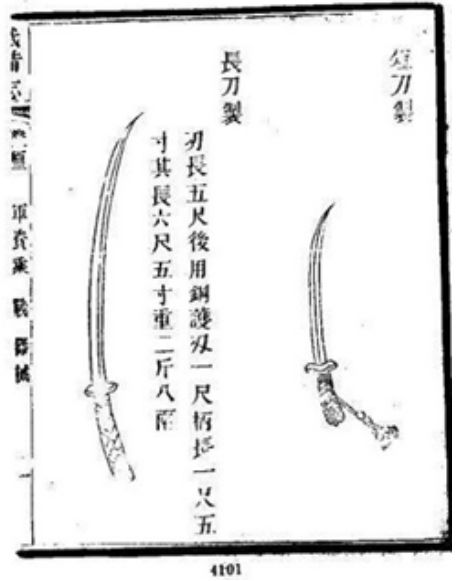 短刀製
長刀製
刃長五尺後用銅護刃一尺柄長一尺五
寸其長六尺五寸重二斤八兩
武備志 軍資乘 戰 器械
4101